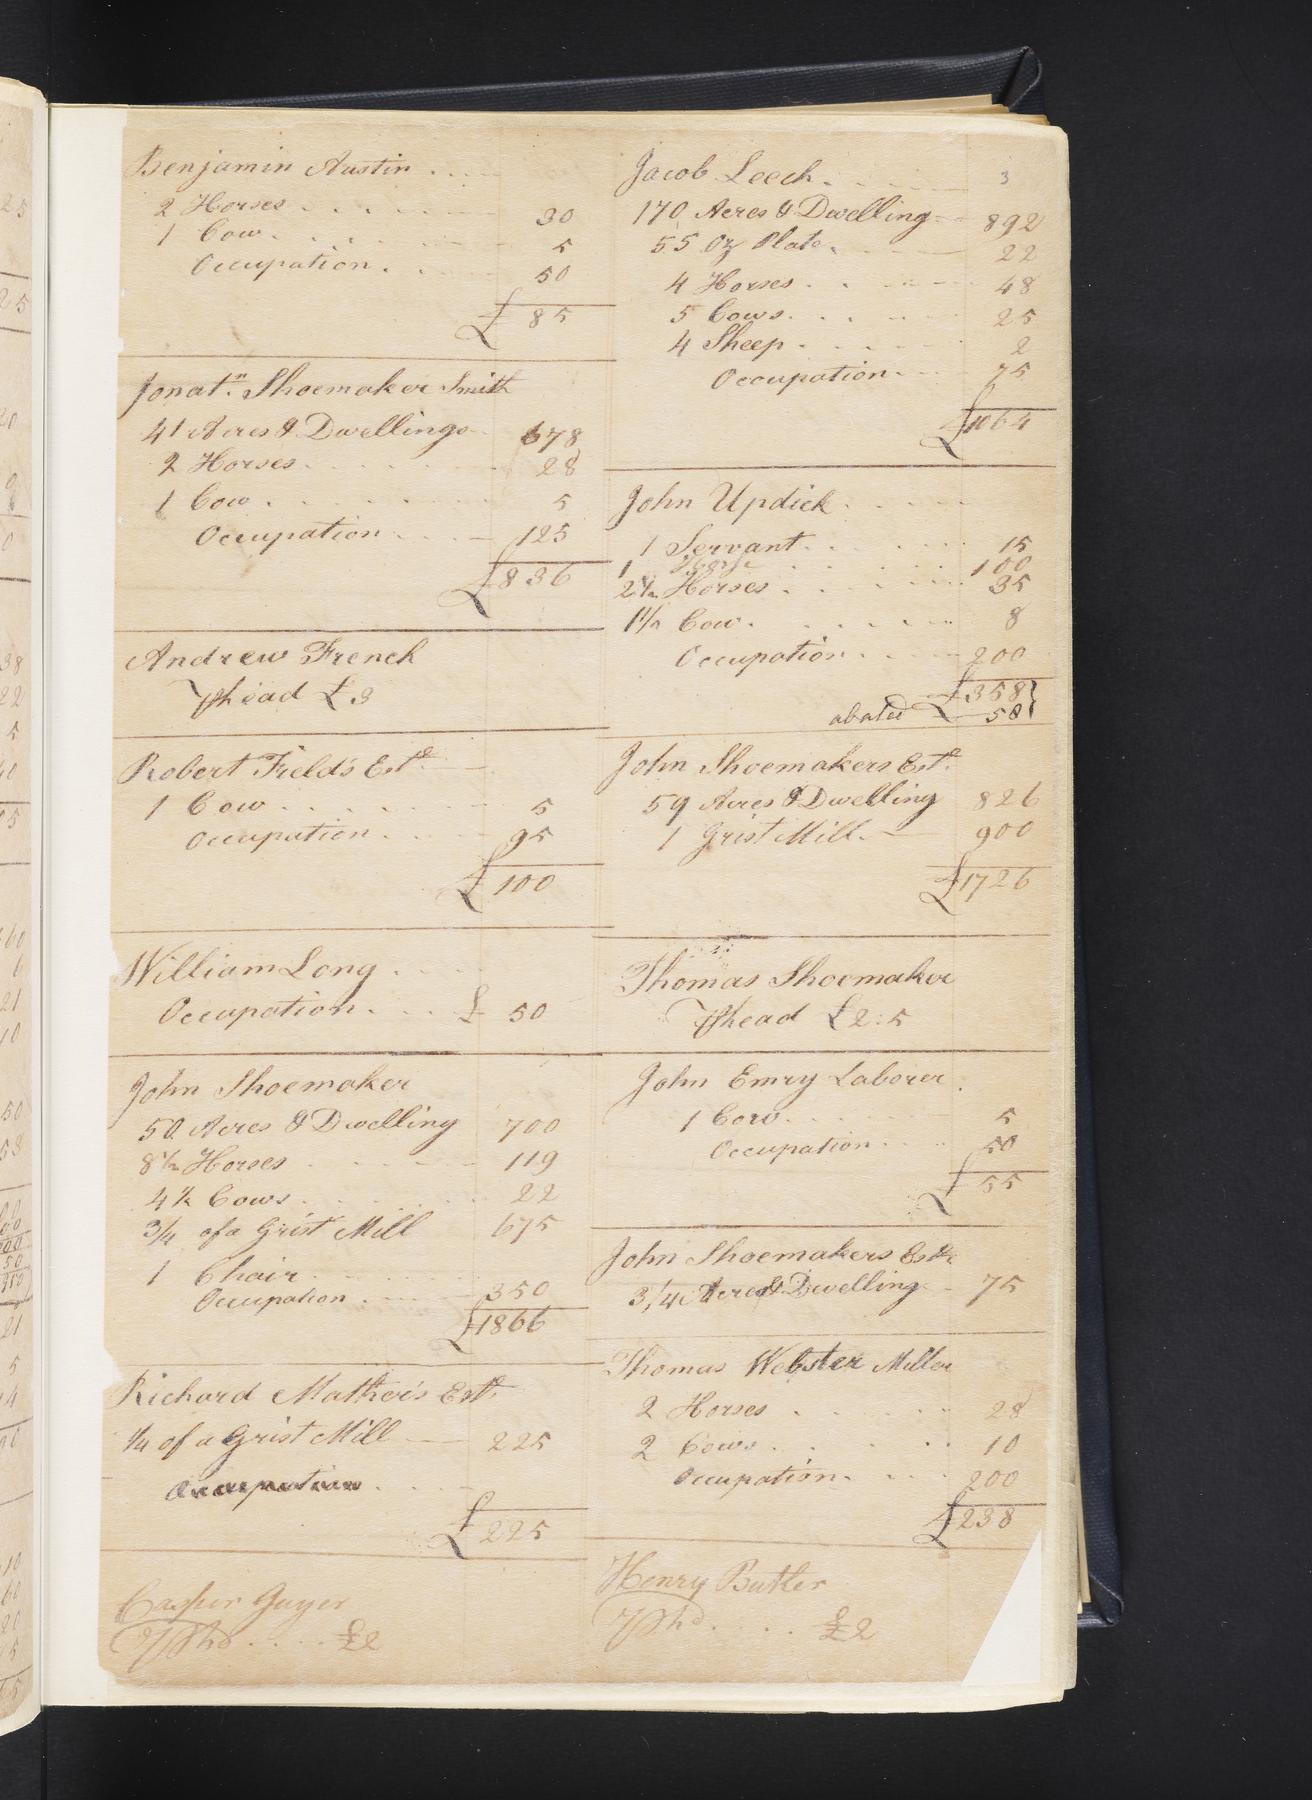 Benjamin Austin
2 Horses 30
1 Cow 5
Occupation 50
£ 85
Jonatn. Shoemaker Smith
41 Acres & Dwellings 678
2 Horses 28
1 Cow 5
Occupation 125
£ 836
Andrew French
⅌ head £ 3
Robert Field's Este
1 Cow 5
Occupation 95
£ 100
William Long
Occupation £ 50
John Shoemaker
50 Acres & Dwelling 700
8½ Horses 119
4½ Cows 22
3/4 of a Grist Mill 675
1 Chair
Occupation 350
£1866
Richard Mather's Est.
¼ of a Grist Mill 225
Occupation
£ 225
Casper Guyer
⅌ hd £2
3
Jacob Leech
170 Acres & Dwelling 892
55 Oz Plate 22
4 Horses 48
5 Cows 25
4 Sheep 2
Occupation 75
£1064
John Updick
1 Servant 15
1 100
2½ Horses 35
1½ Cow 8
Occupation 200
£358
abated £ 58
John Shoemakers Est.
59 Acres & Dwelling 826
1 Grist Mill 900
£1726
Thomas Shoemaker
⅌ head £2:5
John Emry Laborer
1 Cow 5
Occupation 50
£ 55
John Shoemakers Este
3/4 Acre & Dwelling 75
Thomas Webster Miller
2 Horses 28
2 Cows 10
Occupation 200
£238
Henry Butler
⅌ hd £2